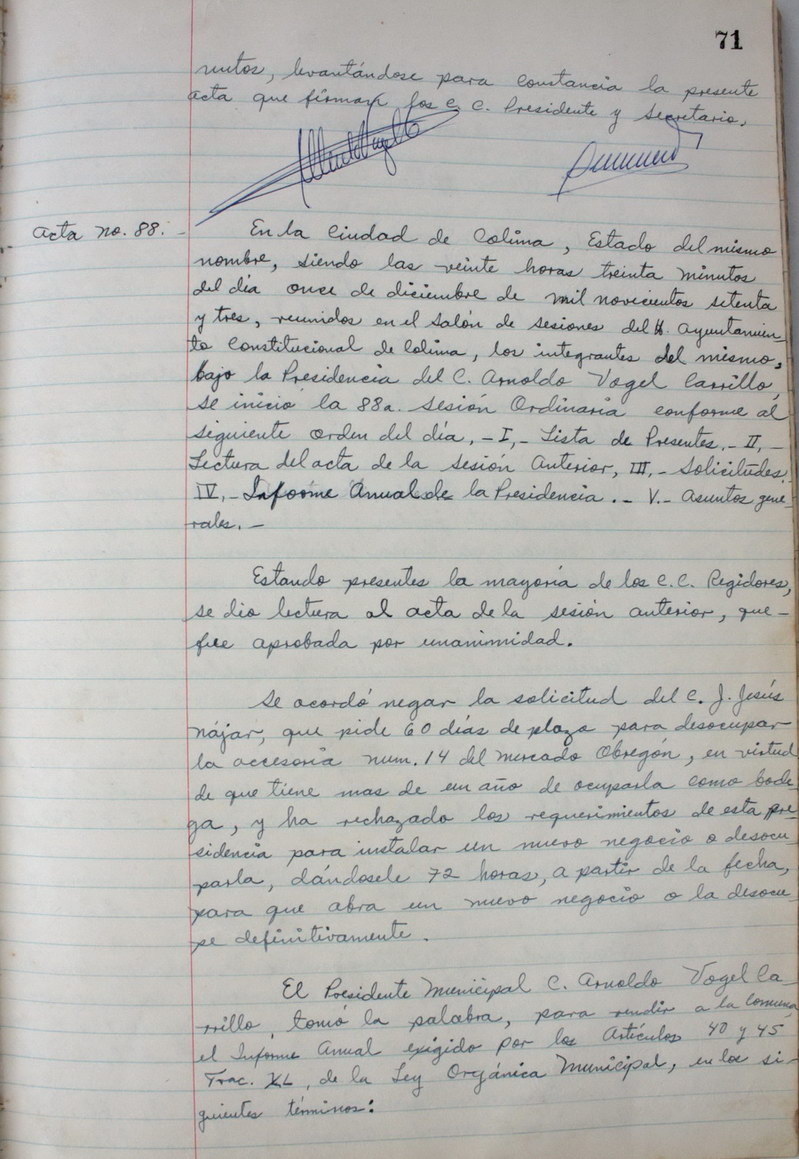 71
nutos, levantándose para constancia la presente
acta que firman los C. C. Presidente y Secretario.
Acta no. 88. -
En la Ciudad de Colima, Estado del mismo
nombre, siendo las veinte horas treinta minutos
del día once de diciembre de mil novecientos setenta
y tres, reunidos en el Salón de Sesiones del H. Ayuntamien-
to Constitucional de Colima, los integrantes del mismo,
bajo la Presidencia del C. Arnoldo Vogel Carrillo,
se inició la 88a. Sesión Ordinaria conforme al
siguiente orden del día. - I.- Lista de Presentes. - II.-
Lectura del acta de la Sesión Anterior, III.- Solicitudes.
IV.- Informe Anual de la Presidencia. - V.- Asuntos gene-
rales. -
Estando presentes la mayoría de los C.C. Regidores,
se dio lectura al acta de la sesión anterior, que-
fue aprobada por unanimidad.
Se acordó negar la solicitud del C. J. Jesús
Nájar, que pide 60 días de plazo para desocupar
la accesoria num. 14 del mercado Obregón, en virtud
de que tiene mas de un año de ocuparla como bode-
ga, y ha rechazado los requerimientos de esta pre-
sidencia para instalar un nuevo negocio o desocu-
parla, dándosele 72 horas, a partir de la fecha,
para que abra un nuevo negocio o la desocu-
pe definitivamente.
El Presidente Municipal C. Arnoldo Vogel Ca-
rrillo, tomó la palabra, para rendir a la comuna
el Informe Anual exigido por los Artículos 40 y 45
Frac. XL, de la Ley Orgánica Municipal, en los si-
guientes términos: